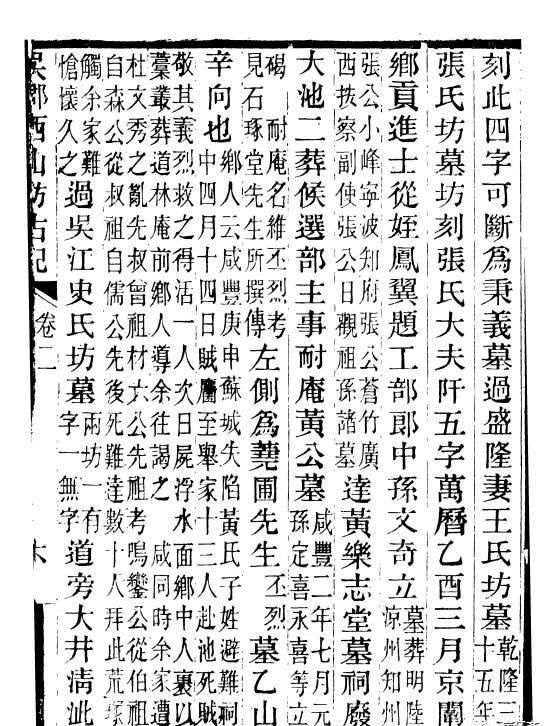 刻此四字可斷爲秉義墓過盛隆妻王氏坊墓乾隆三十五年
張氏坊墓坊刻張氏大夫阡五字萬曆乙酉三月京闈
鄉貢進士從姪鳳翼題工部郎中孫文奇立墓葬明陸涼州知州
張公小峰寧波知府張公蒼竹廣西按察副使張公日觀祖孫諸墓達黃樂志堂墓祠廢
大池二葬候選部主事耐庵黃公墓咸豐二年七月元孫定喜永喜等立
碣 耐庵名維丕烈考見石琢堂先生所撰傳左側爲蕘圃先生丕烈墓乙山
辛向也鄉人云咸豐庚申蘇城失陷黃氏子姓避難祠中四月十四日賊麕至舉家十三人赴池死賊
敬其義烈救之得活一人次日屍浮水面鄉中人裹以藁叢葬道林庵前鄉人導余往謁之 咸同時余家遭
杜文秀之亂先叔曾祖材六公先祖考鳴鑾公從伯祖自森公從叔祖自儒公先後死難達數十人拜此荒塚
觸余家難愴懷久之過吳江史氏坊墓兩坊一有字一無字道旁大井清泚
吳郡西山訪古記 卷二